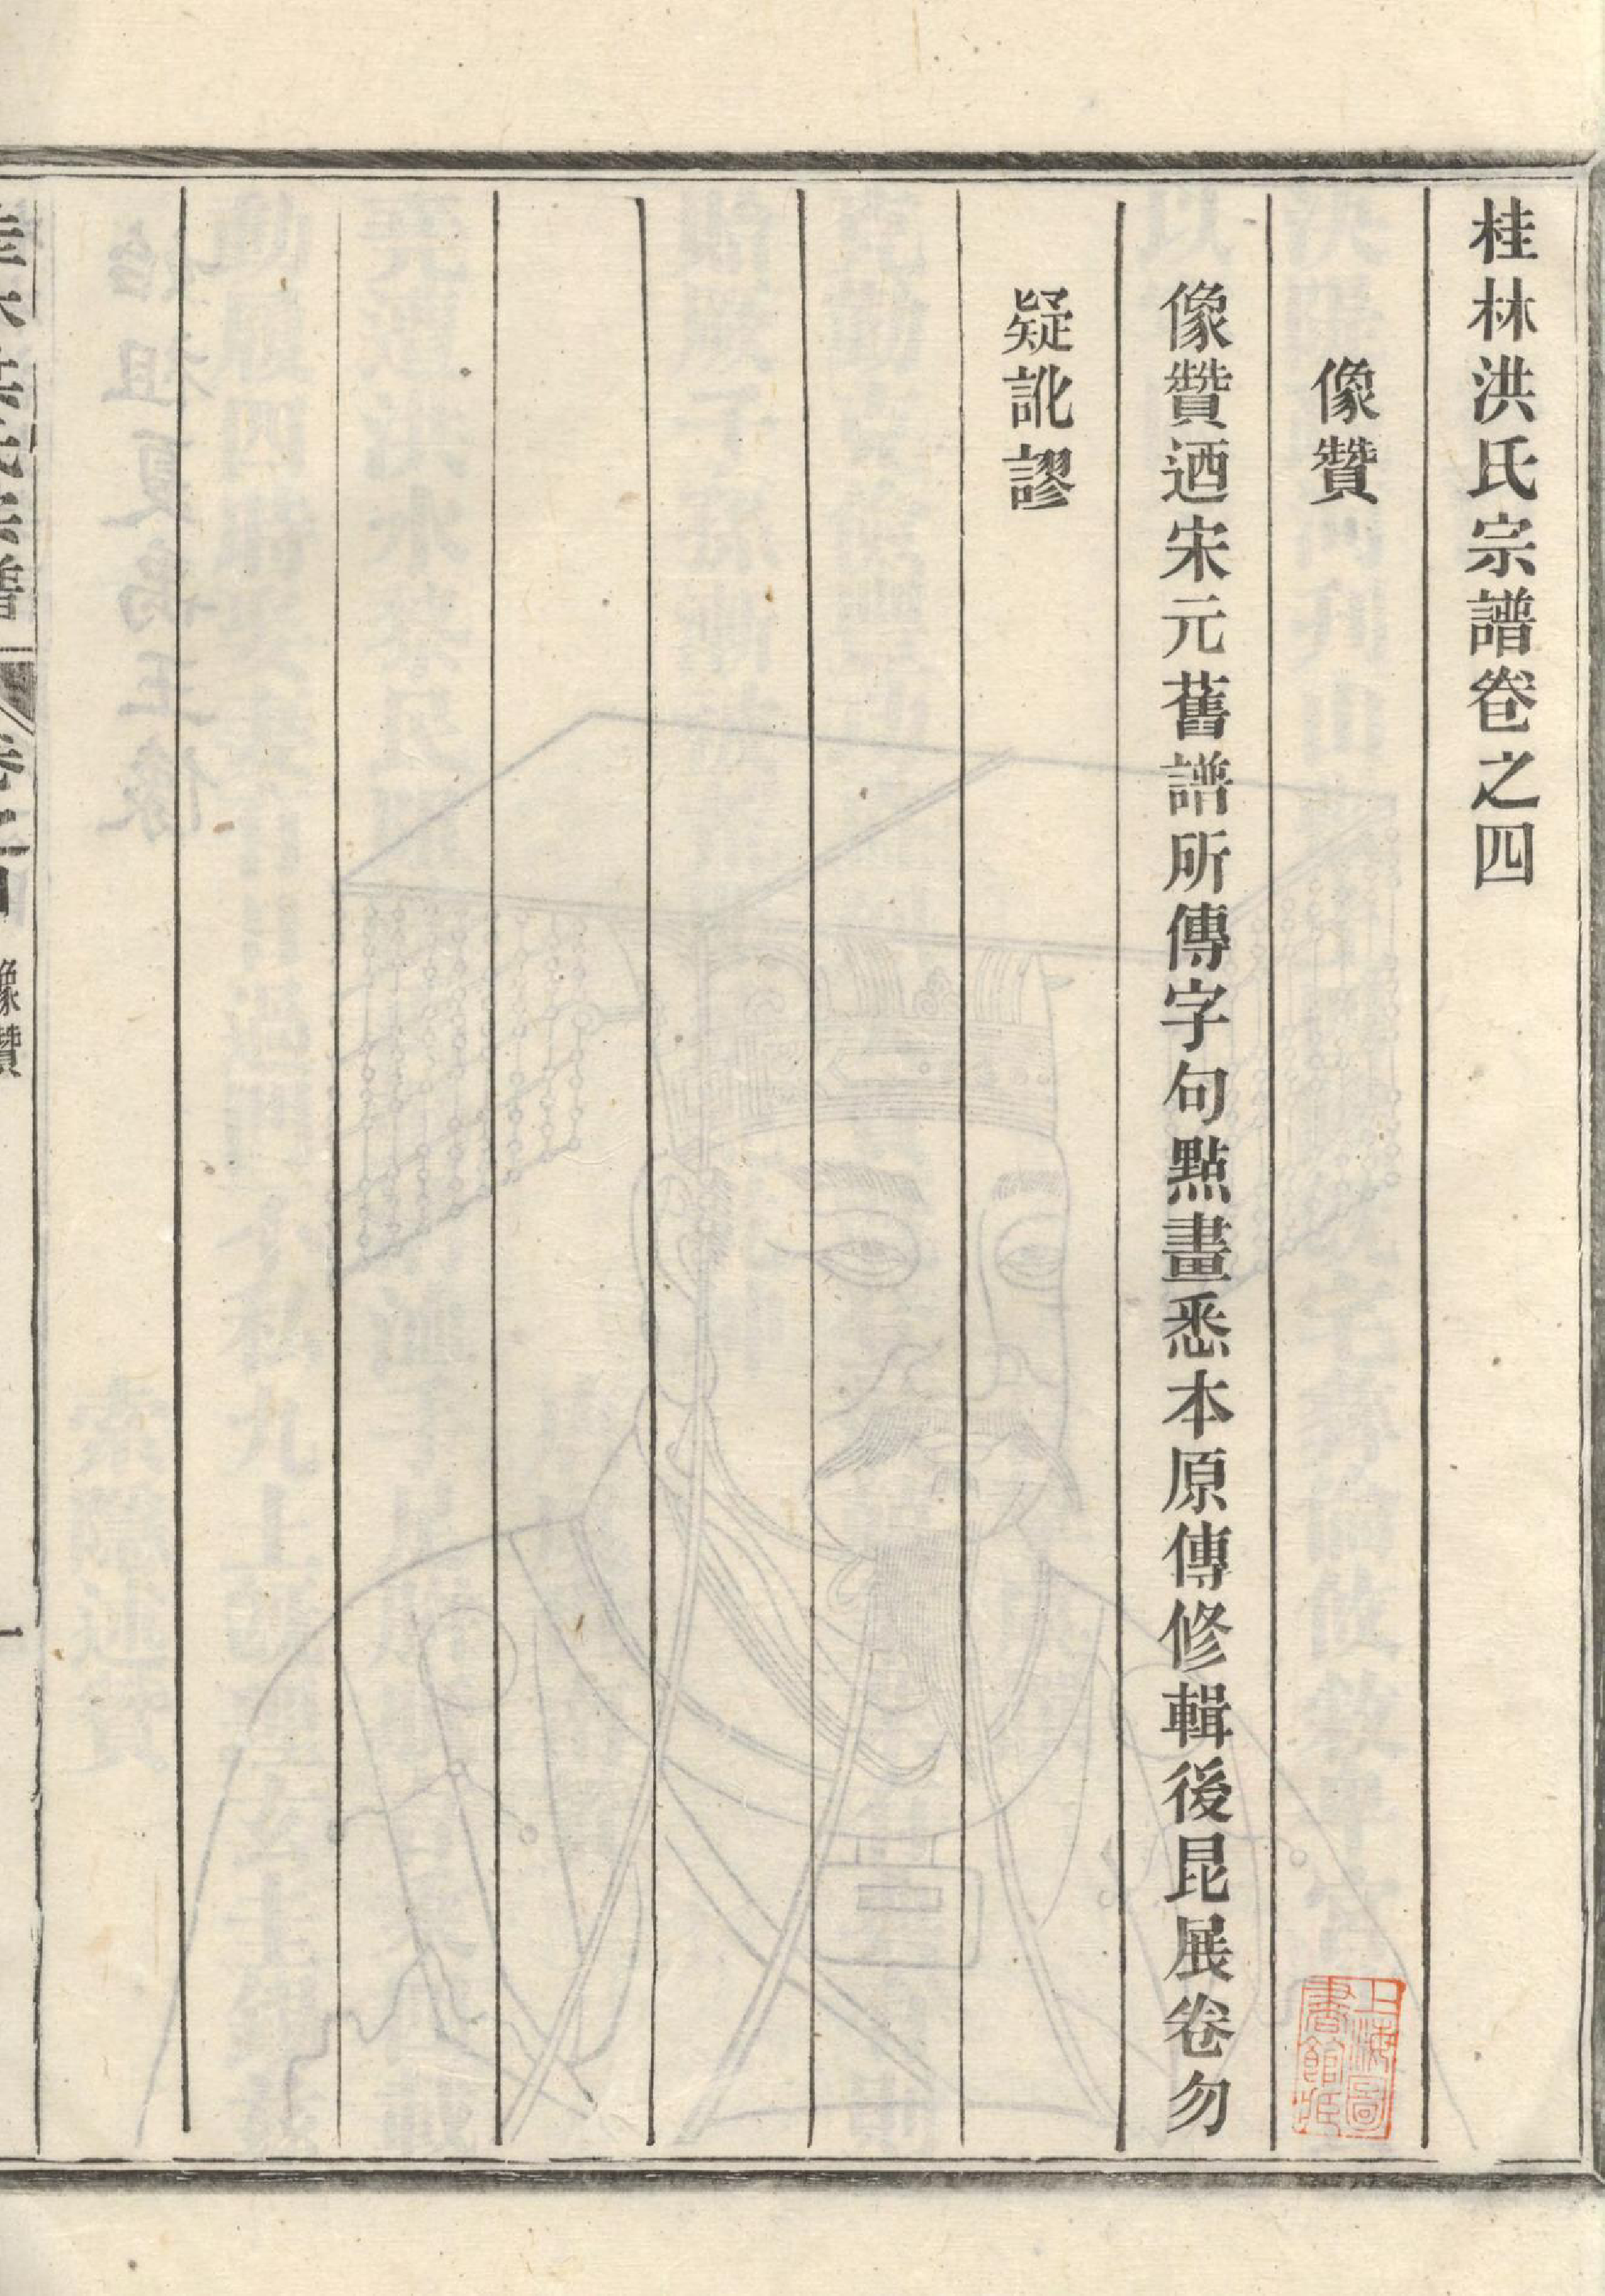 桂林洪氏宗譜卷之四
像贊
像贊迺宋元舊譜所傳字句點畫悉本原傳修輯後昆展卷勿
疑訛謬
上海圖
書館藏
桂林洪氏宗譜
卷之四
像贊
一